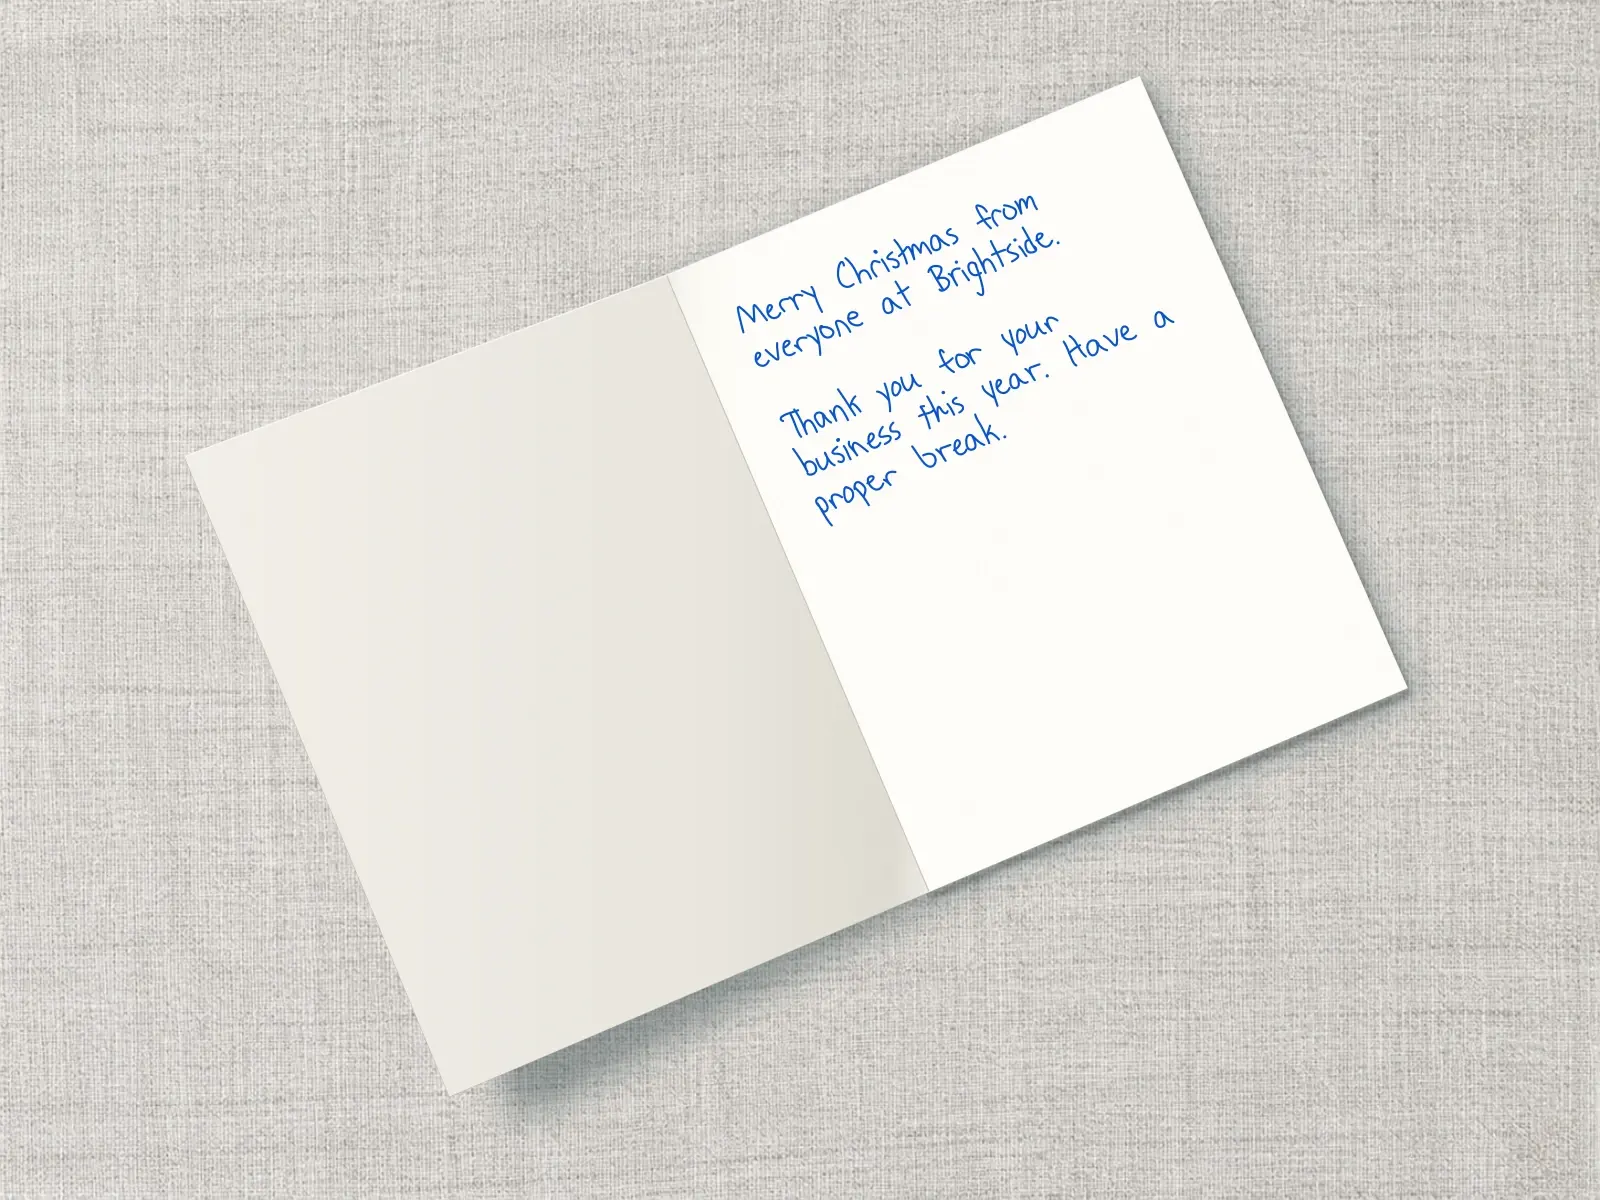 Merry Christmas from
everyone at Brightside.
Thank you for your
business this year. Have a
proper break.